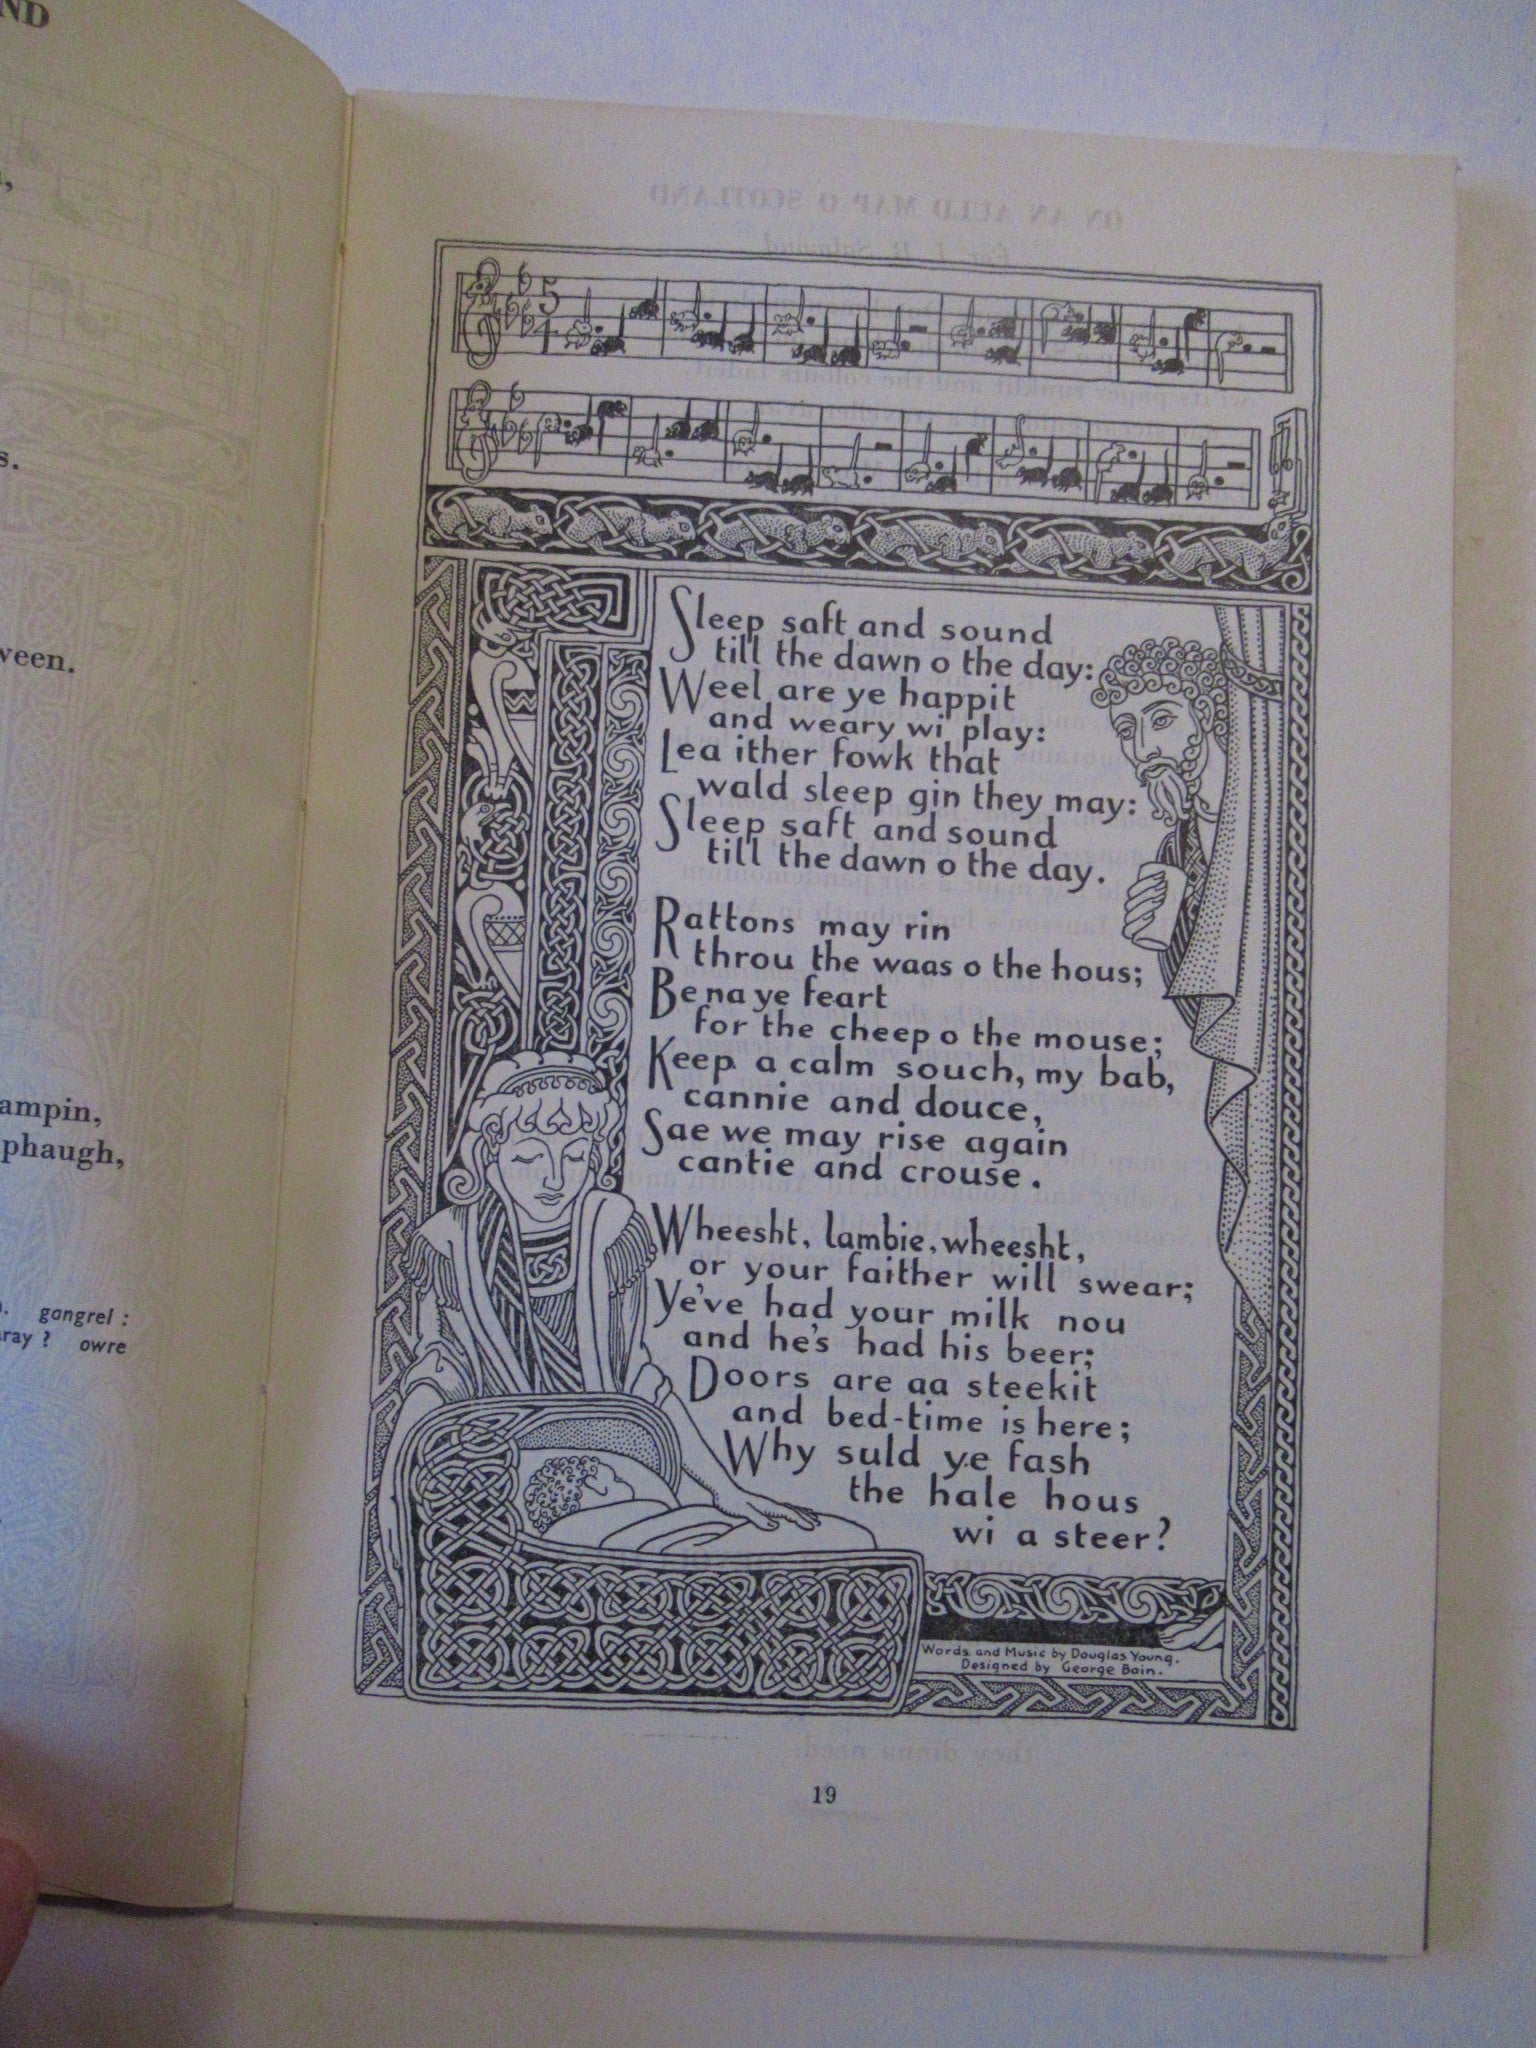 ND
s.
ween.
ampin,
phaugh,
gangrel :
owre
5
4
Sleep saft and sound
till the dawn o the day:
Weel are ye happit
and weary wi play:
Lea ither fowk that
wald sleep gin they may:
Sleep saft and sound
till the dawn o the day.
Rattons may rin
throu the waas o the hous;
Be na ye feart
for the cheep o the mouse;
Keep a calm souch, my bab,
cannie and douce,
Sae we may rise again
cantie and crouse.
Wheesht, lambie, wheesht,
or your faither will swear;
Ye've had your milk nou
and he's had his beer;
Doors are aa steekit
and bed-time is here;
Why suld ye fash
the hale hous
wi a steer?
Words and Music by Douglas Young.
Designed by George Bain.
19